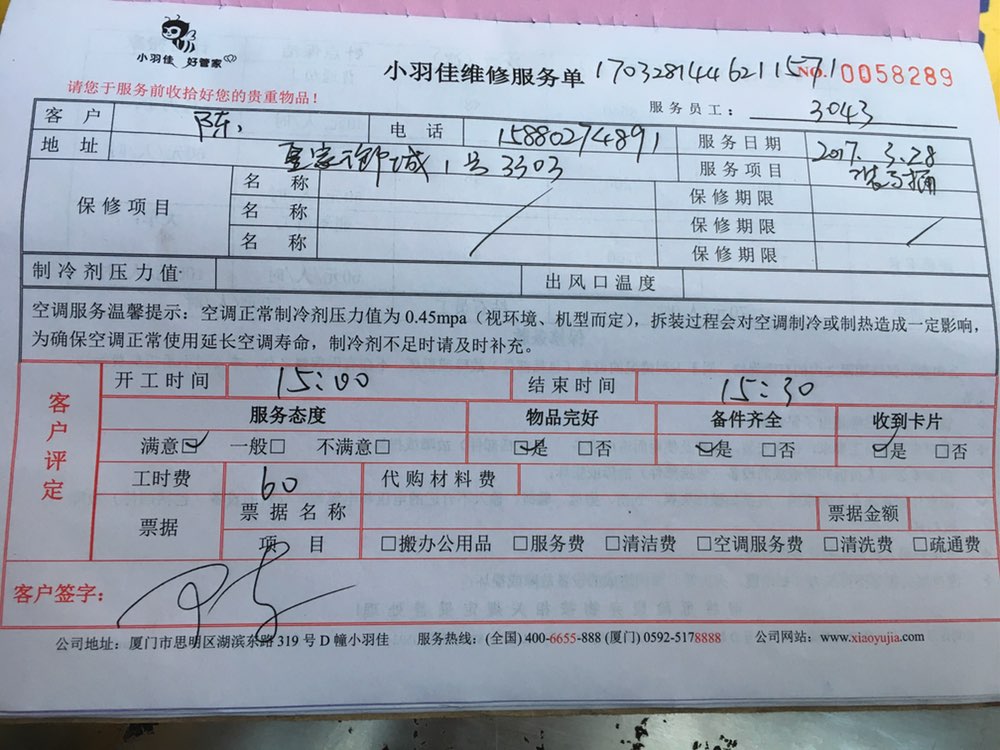 小羽佳 好管家
小羽佳维修服务单 1703281446211571 NO. 0058289
请您于服务前收拾好您的贵重物品！
服务员工： 3043
客户 陈 电话 15880274891 服务日期 2017.3.28
地址 皇家御城1号3303 服务项目 装马桶
保修项目 名称 保修期限
名称 保修期限
名称 保修期限
制冷剂压力值 出风口温度
空调服务温馨提示：空调正常制冷剂压力值为 0.45mpa（视环境、机型而定），拆装过程会对空调制冷或制热造成一定影响，
为确保空调正常使用延长空调寿命，制冷剂不足时请及时补充。
客户评定
开工时间 15:00 结束时间 15:30
服务态度 物品完好 备件齐全 收到卡片
满意☑ 一般□ 不满意□ ☑是 □否 ☑是 □否 ☑是 □否
工时费 60 代购材料费
票据 票据名称 票据金额
项目 □搬办公用品 □服务费 □清洁费 □空调服务费 □清洗费 □疏通费
客户签字： 陈
公司地址：厦门市思明区湖滨东路 319 号 D 幢小羽佳 服务热线：(全国) 400-6655-888 (厦门) 0592-5178888 公司网站：www.xiaoyujia.com